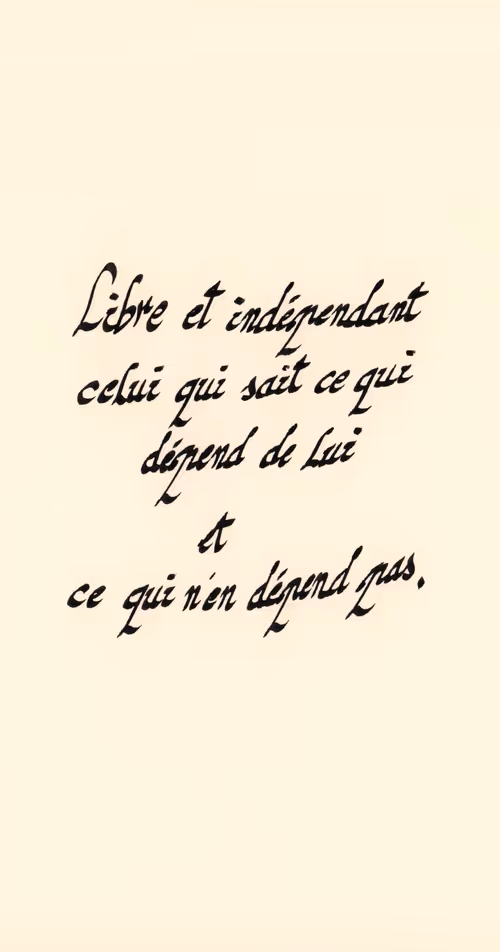 Libre et indépendant
celui qui sait ce qui
dépend de lui
et
ce qui n'en dépend pas.